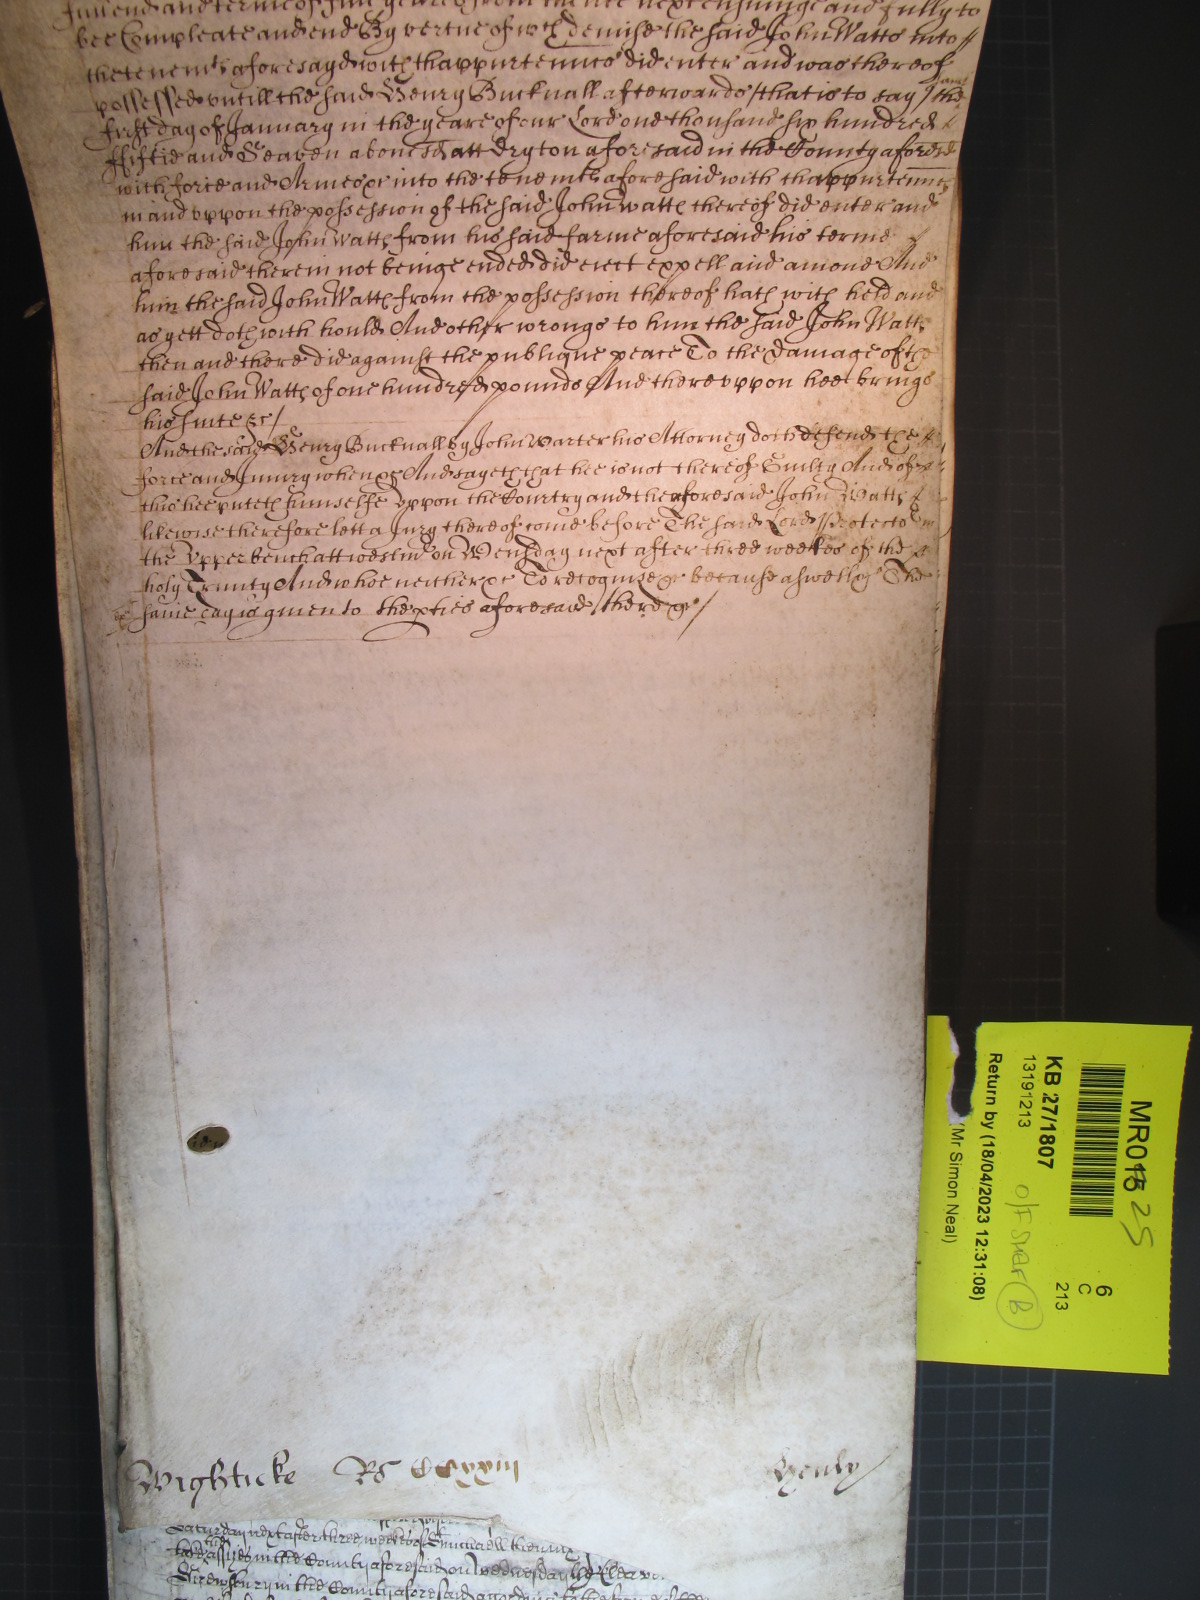 end and terme of five yeares from thence next ensuinge and fully to
bee Compleate and end By vertue of wch demise the said John Watts into
the tenemts aforesayd with thappurtennces did enter and was thereof
possessed untill the said Henry Bucknall afterwards /that is to say/ the
first day of January in the yeare of our Lord one thousand six hundred
ffiftie and Seaven abovesd att Dryton aforesaid in the County aforesd
with force and Armes &c into the tenemts aforesaid with thappurtennces
in and uppon the possession of the said John Watts thereof did enter and
him the said John Watts from his said farme aforesaid his terme
aforesaid therein not beinge ended did eiect expell and amove And
him the said John Watts from the possession thereof hath with held and
as yett doth with hould And other wrongs to him the said John Watts
then and there did against the publique peace To the damage of the
said John Watts of one hundred pounds And thereuppon hee brings
his suite &c/
And the said Henry Bucknall by John Warter his Attorney doth defend the
force and Iniury when &c And sayeth that hee is not thereof Guilty And of
this hee puteth himselfe uppon the Country and the aforesaid John Watts
likewise therefore lett a Jury thereof come before The said Lord Protector
the Upper bench att westmr on Wensday next after three weekes of the
holy Trinity And whoe neither &c To recognise &c because aswell &c The
same day is given to the pties aforesaid there &c/
Wighticke Ro CCxxiii Henly
Saturday next after three weekes of St michaell
assizes in the County aforesaid on Wednesday the
Shrewsbury in the County aforesaid
MR01 25
6
C
213
KB 27/1807
13191213
O/F Shelf B
Return by (18/04/2023 12:31:08)
(Mr Simon Neal)